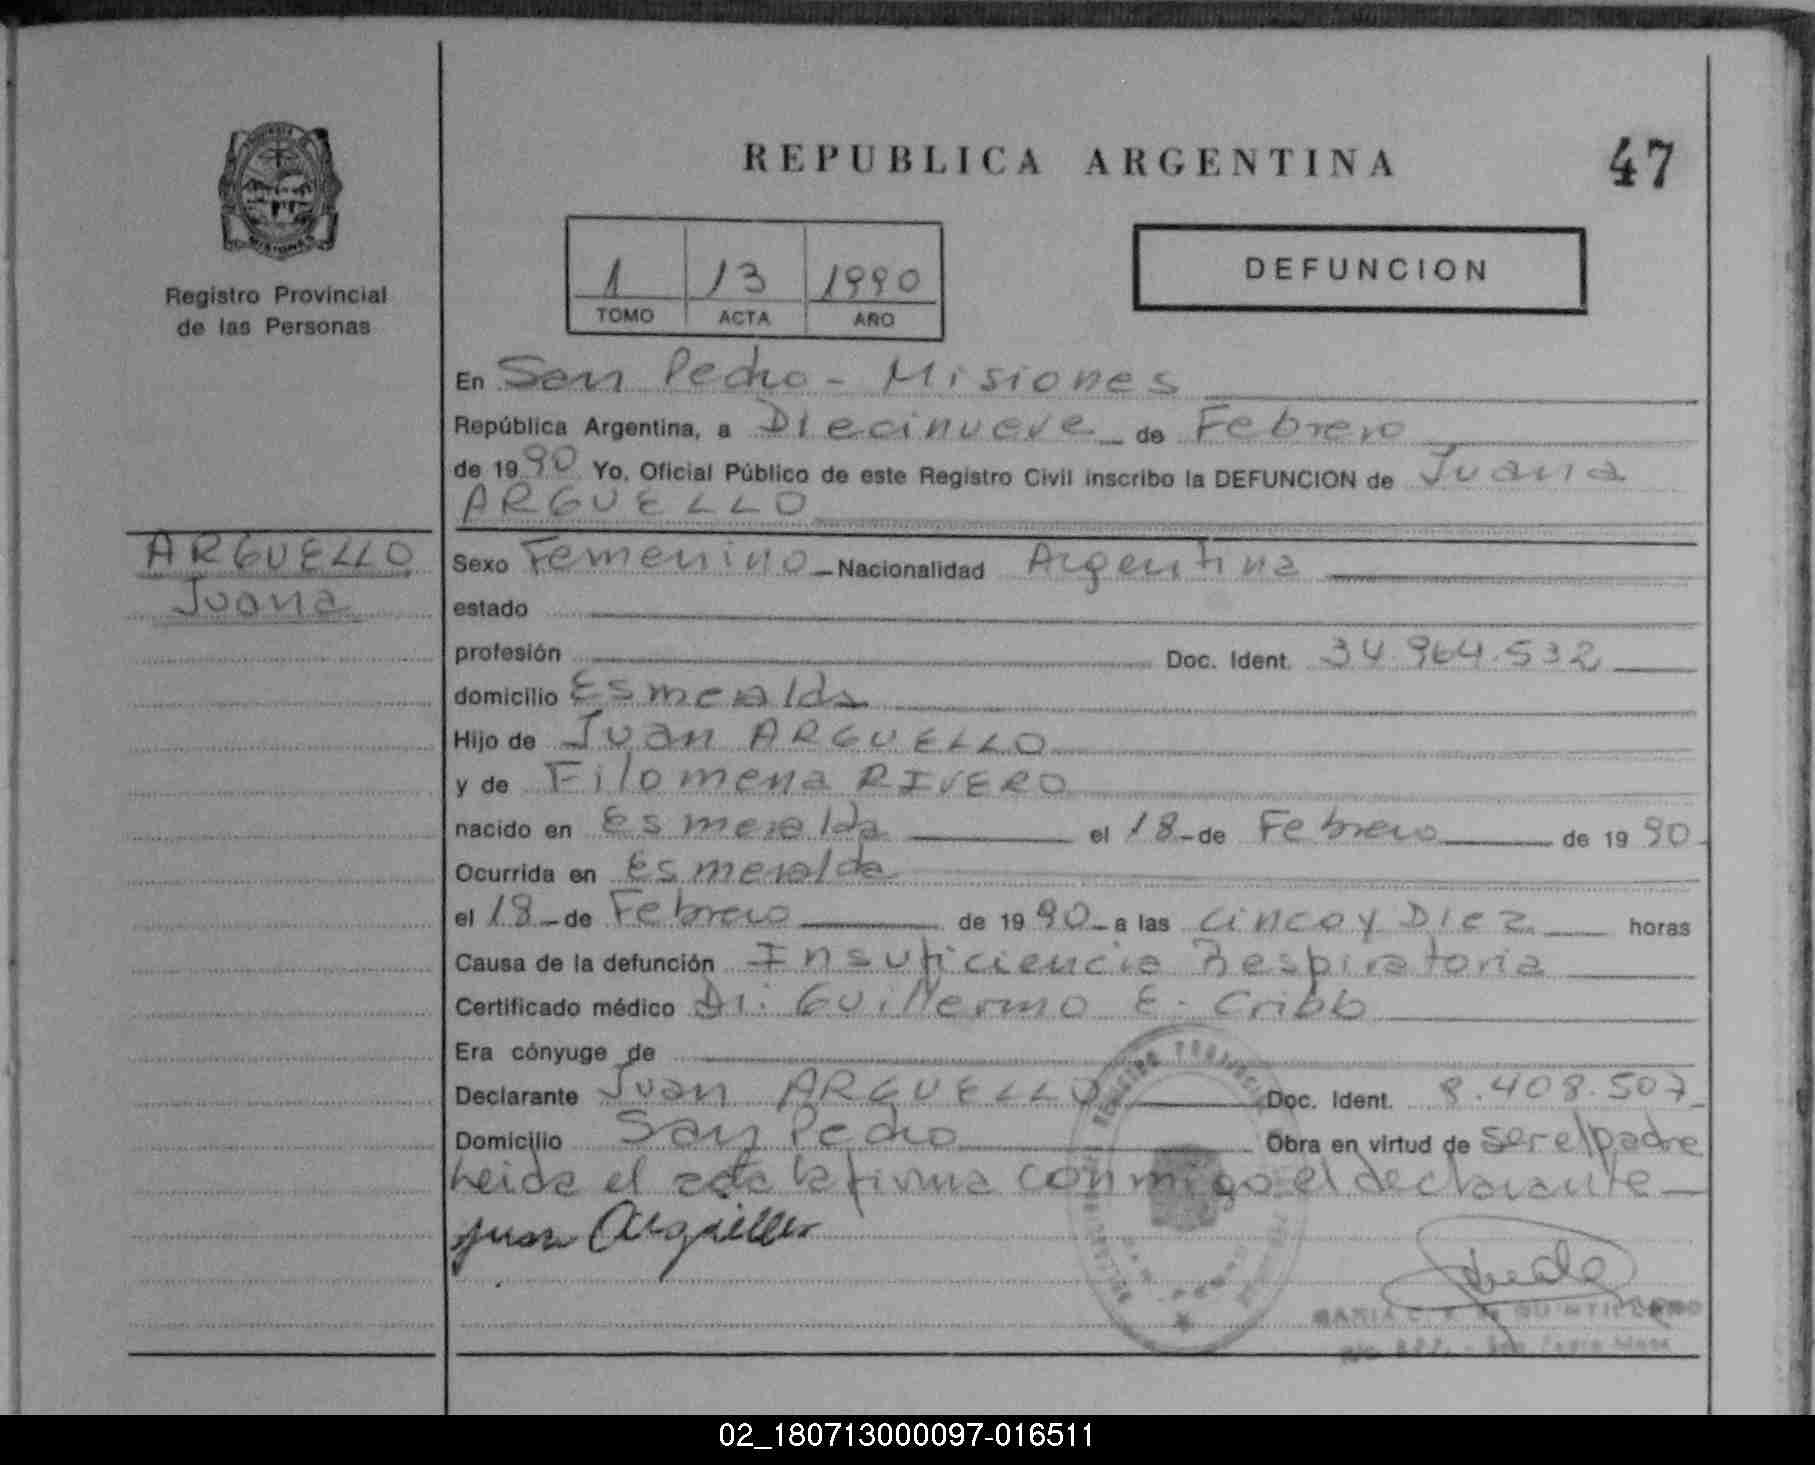 REPUBLICA ARGENTINA
47
MISIONES
Registro Provincial
de las Personas
1 13 1990
TOMO ACTA AÑO
DEFUNCION
En San Pedro - Misiones
República Argentina, a Diecinueve de Febrero
de 1990 Yo, Oficial Público de este Registro Civil inscribo la DEFUNCION de Juana
ARGUELLO
ARGUELLO
Juana
Sexo Femenino Nacionalidad Argentina
estado
profesión Doc. Ident. 34.964.532
domicilio Esmeralda
Hijo de Juan ARGUELLO
y de Filomena RIVERO
nacido en Esmeralda el 18 de Febrero de 1990
Ocurrida en Esmeralda
el 18 de Febrero de 1990 a las cinco y Diez horas
Causa de la defunción Insuficiencia Respiratoria
Certificado médico Dr. Guillermo E. Cribb
Era cónyuge de
Declarante Juan ARGUELLO Doc. Ident. 8.408.507
Domicilio San Pedro Obra en virtud de ser el padre
Leida el acta la firma conmigo el declarante
Juan Arguello
02_180713000097-016511